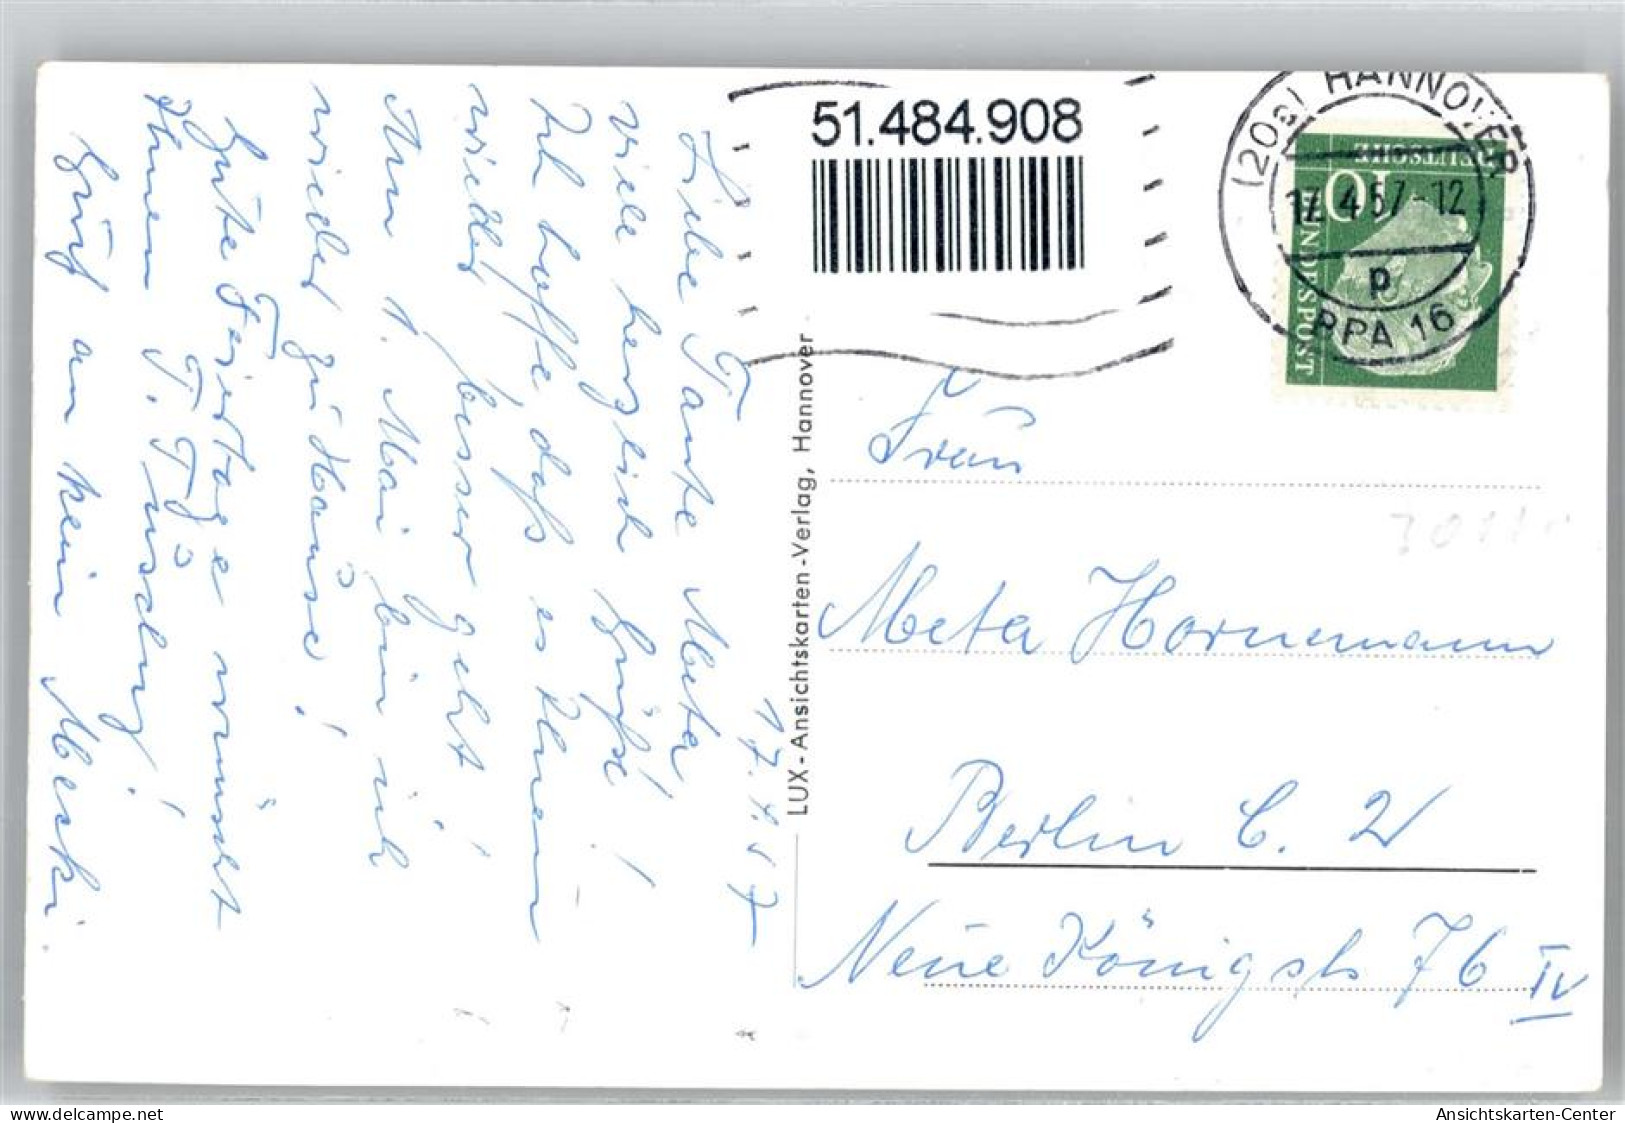 17.4.57
Liebe Tante Meta,
viele herzlich Grüße!
Ich hoffe, daß es Ihnen
wieder besser geht!
Am 1. Mai bin ich
wieder zu Hause!
Gute Feiertage wünscht
Ihnen T. Trudung!
Gruß an klein Meski.
LUX - Ansichtskarten-Verlag, Hannover
51.484.908
(20a) HANNOVER
17.4.57-12
p
BPA 16
DEUTSCHE
BUNDESPOST
10
Frau
Meta Hornemann
Berlin C. 2
Neue Königstr 76 IV
delcampe.net
Ansichtskarten-Center